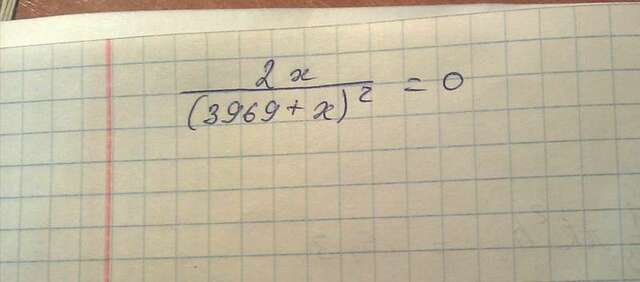 2x
(3969 + x)² = 0